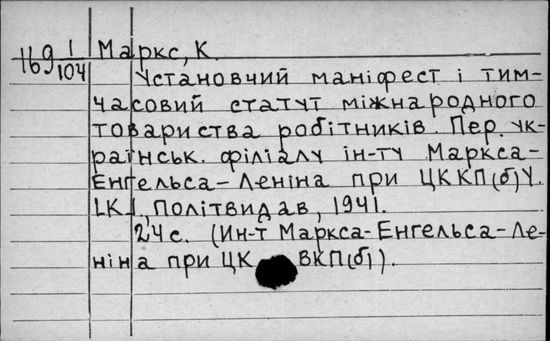 169 1/104 Маркс, К.
Установчий маніфест і тим-
часовий статут міжнародного
товариства робітників. Пер. ук-
раїнськ. філіалу ін-ту Маркса-
Енгельса-Леніна при ЦККП(б)У.
[К.], Політвидав, 1941.
24 с. (Ин-т Маркса-Енгельса-Ле-
ніна при ЦК ВКП(б)).